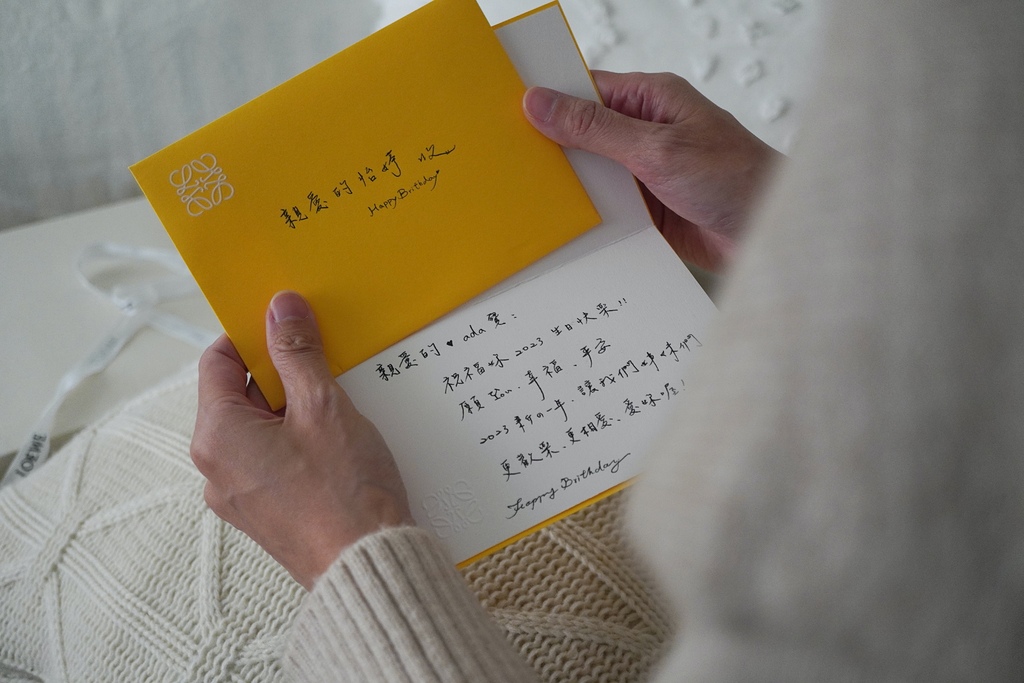 親愛的怡婷 收
Happy Birthday
親愛的 ♥ ada寶:
祝福妳 2023 生日快樂!!
願 you、幸福、平安
2023 新的一年,讓我們姊妹們
更歡樂、更相愛、愛妳喔!
Happy Birthday
LOEWE